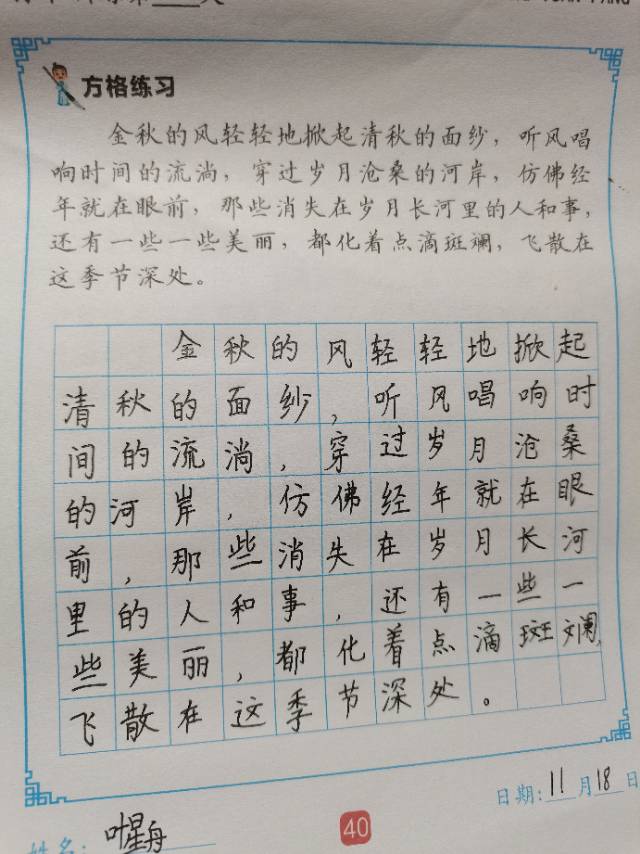 方格练习
金秋的风轻轻地掀起清秋的面纱，听风唱
响时间的流淌，穿过岁月沧桑的河岸，仿佛经
年就在眼前，那些消失在岁月长河里的人和事，
还有一些一些美丽，都化着点滴斑斓，飞散在
这季节深处。
金秋的风轻轻地掀起
清秋的面纱，听风唱响时
间的流淌，穿过岁月沧桑
的河岸，仿佛经年就在眼
前，那些消失在岁月长河
里的人和事，还有一些一
些美丽，都化着点滴斑斓，
飞散在这季节深处。
日期：11月18日
姓名：叶星舟
40